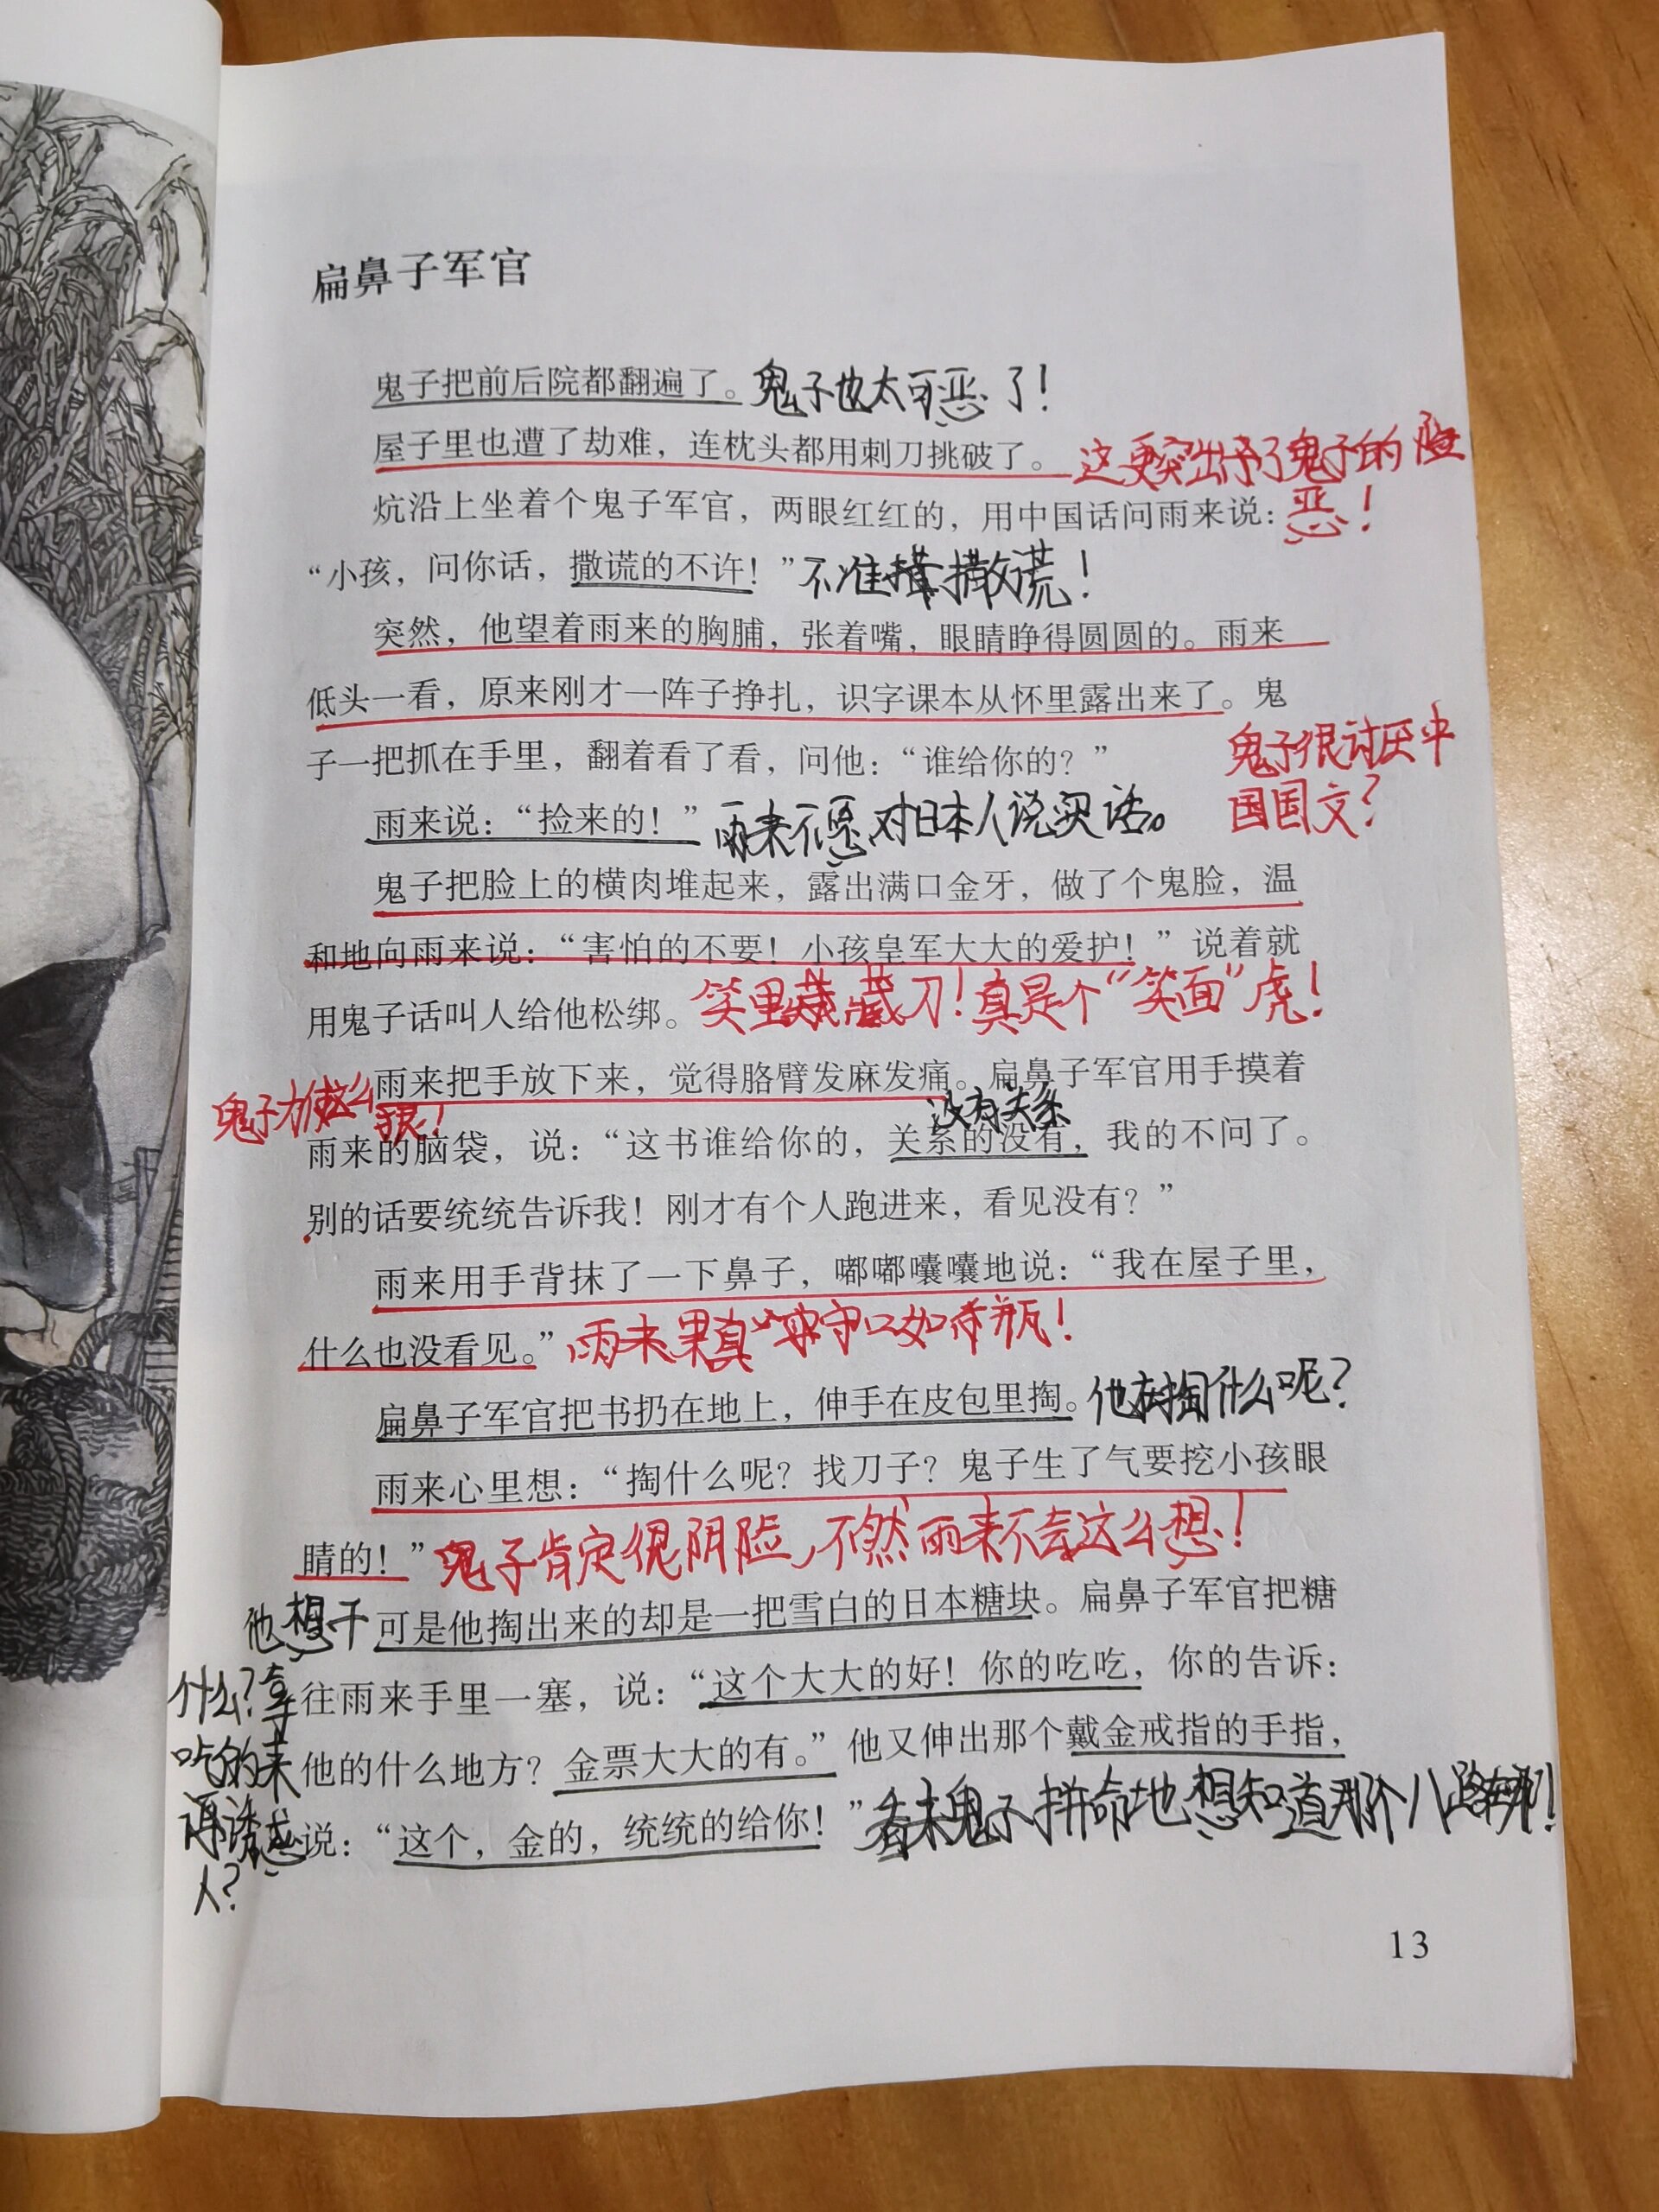 扁鼻子军官
鬼子把前后院都翻遍了。鬼子也太可恶了！
屋子里也遭了劫难，连枕头都用刺刀挑破了。这更突出了鬼子的险
恶！
炕沿上坐着个鬼子军官，两眼红红的，用中国话问雨来说：
“小孩，问你话，撒谎的不许！”不准撒谎！
突然，他望着雨来的胸脯，张着嘴，眼睛睁得圆圆的。雨来
低头一看，原来刚才一阵子挣扎，识字课本从怀里露出来了。鬼
子一把抓在手里，翻着看了看，问他：“谁给你的？”
鬼子很讨厌中
国国文？
雨来说：“捡来的！”雨来不愿对日本人说实话。
鬼子把脸上的横肉堆起来，露出满口金牙，做了个鬼脸，温
和地向雨来说：“害怕的不要！小孩皇军大大的爱护！”说着就
用鬼子话叫人给他松绑。笑里藏刀！真是个“笑面”虎！
雨来把手放下来，觉得胳臂发麻发痛。扁鼻子军官用手摸着
鬼子力使这么
狠！
没有关系
雨来的脑袋，说：“这书谁给你的，关系的没有，我的不问了。
别的话要统统告诉我！刚才有个人跑进来，看见没有？”
雨来用手背抹了一下鼻子，嘟嘟囔囔地说：“我在屋子里，
什么也没看见。”雨来果真“守口如瓶！
扁鼻子军官把书扔在地上，伸手在皮包里掏。他在掏什么呢？
雨来心里想：“掏什么呢？找刀子？鬼子生了气要挖小孩眼
睛的！”鬼子肯定很阴险，不然雨来不会这么想！
可是他掏出来的却是一把雪白的日本糖块。扁鼻子军官把糖
往雨来手里一塞，说：“这个大大的好！你的吃吃，你的告诉：
他的什么地方？金票大大的有。”他又伸出那个戴金戒指的手指，
说：“这个，金的，统统的给你！”看来鬼子拼命地想知道那个八路在哪！
他想干
什么？拿
吃的来
诱惑
人？
13